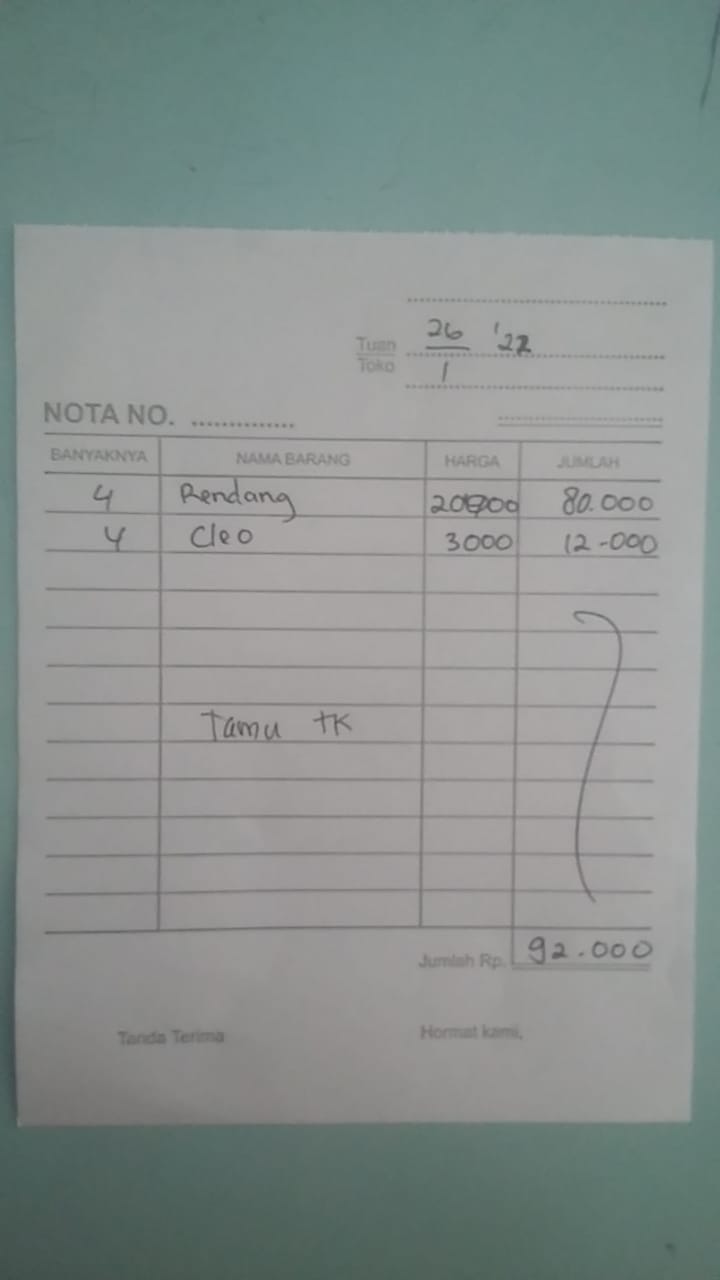 26 '22
Tuan
Toko
1
NOTA NO. ..............
BANYAKNYA NAMA BARANG HARGA JUMLAH
4 Rendang 20000 80.000
4 Cleo 3000 12-000
Tamu TK
Jumlah Rp. 92.000
Tanda Terima Hormat kami,